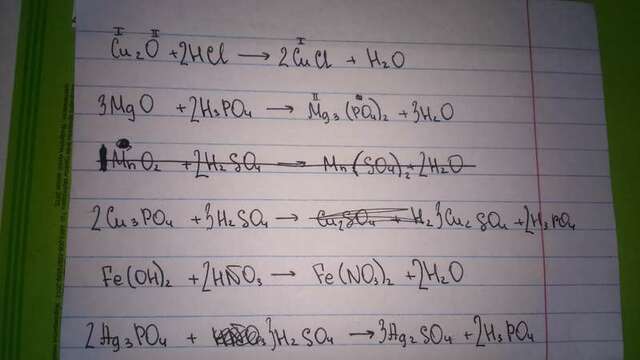 I II I
Cu₂O + 2HCl → 2CuCl + H₂O
II
3MgO + 2H₃PO₄ → Mg₃(PO₄)₂ + 3H₂O
MnO₂ + 2H₂SO₄ → Mn(SO₄)₂ + 2H₂O
2Cu₃PO₄ + 3H₂SO₄ → Cu₂SO₄ + H₂ 3Cu₂SO₄ + 2H₃PO₄
Fe(OH)₂ + 2HNO₃ → Fe(NO₃)₂ + 2H₂O
2Ag₃PO₄ + 3H₂SO₄ → 3Ag₂SO₄ + 2H₃PO₄